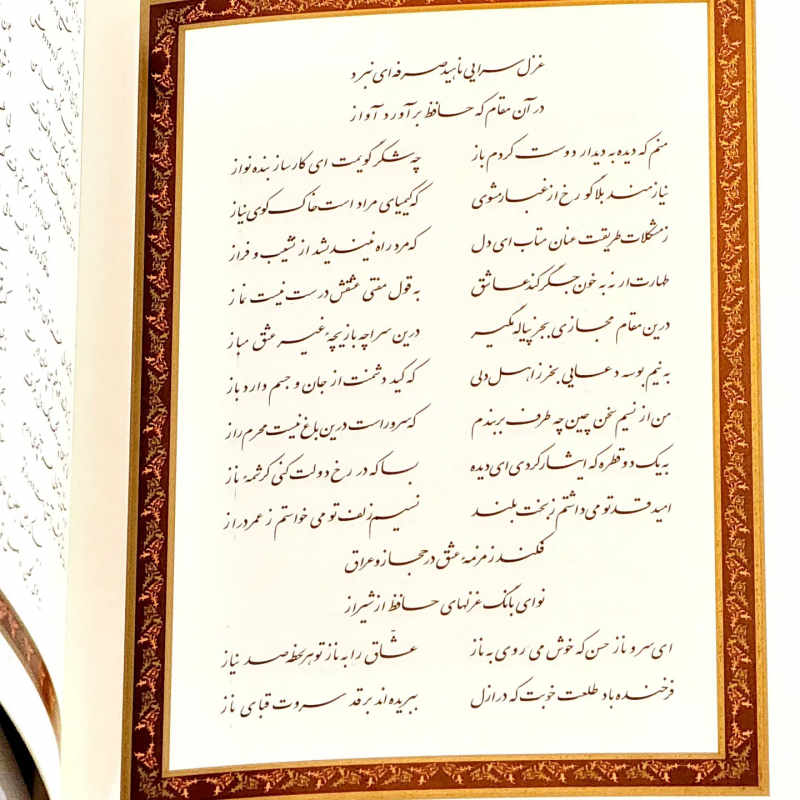 غزل سرایی ناهید صرفه‌ای نبرد
در آن مقام که حافظ برآورد آواز
منم که دیده به دیدار دوست کردم باز چه شکر گویمت ای کارساز بنده نواز
نیازمند بلا گو رخ از غبار مشوی که کیمیای مراد است خاک کوی نیاز
ز مشکلات طریقت عنان متاب ای دل که مرد راه نیندیشد از نشیب و فراز
طهارت ار نه به خون جگر کند عاشق به قول مفتی عشقش درست نیست نماز
درین مقام مجازی بجز پیاله مگیر درین سراچه بازیچه غیر عشق مباز
به نیم بوسه دعایی بخر ز اهل دلی که کید دشمنت از جان و جسم دارد باز
من از نسیم سخن چین چه طرف بربندم که سرو راست درین باغ نیست محرم راز
به یک دو قطره که ایثار کردی ای دیده بسا که در رخ دولت کنی کرشمه ناز
امید قد تو می داشتم ز بخت بلند نسیم زلف تو می خواستم ز عمر دراز
فکند زمزمه عشق در حجاز و عراق
نوای بانگ غزلهای حافظ از شیراز
ای سرو ناز حسن که خوش می روی به ناز عشاق را به ناز تو هر لحظه صد نیاز
فرخنده باد طلعت خوبت که در ازل ببریده اند بر قد سروت قبای ناز